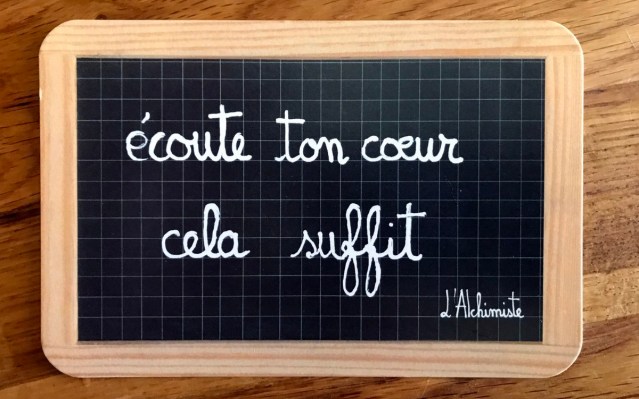 écoute ton cœur
cela suffit
L'Alchimiste